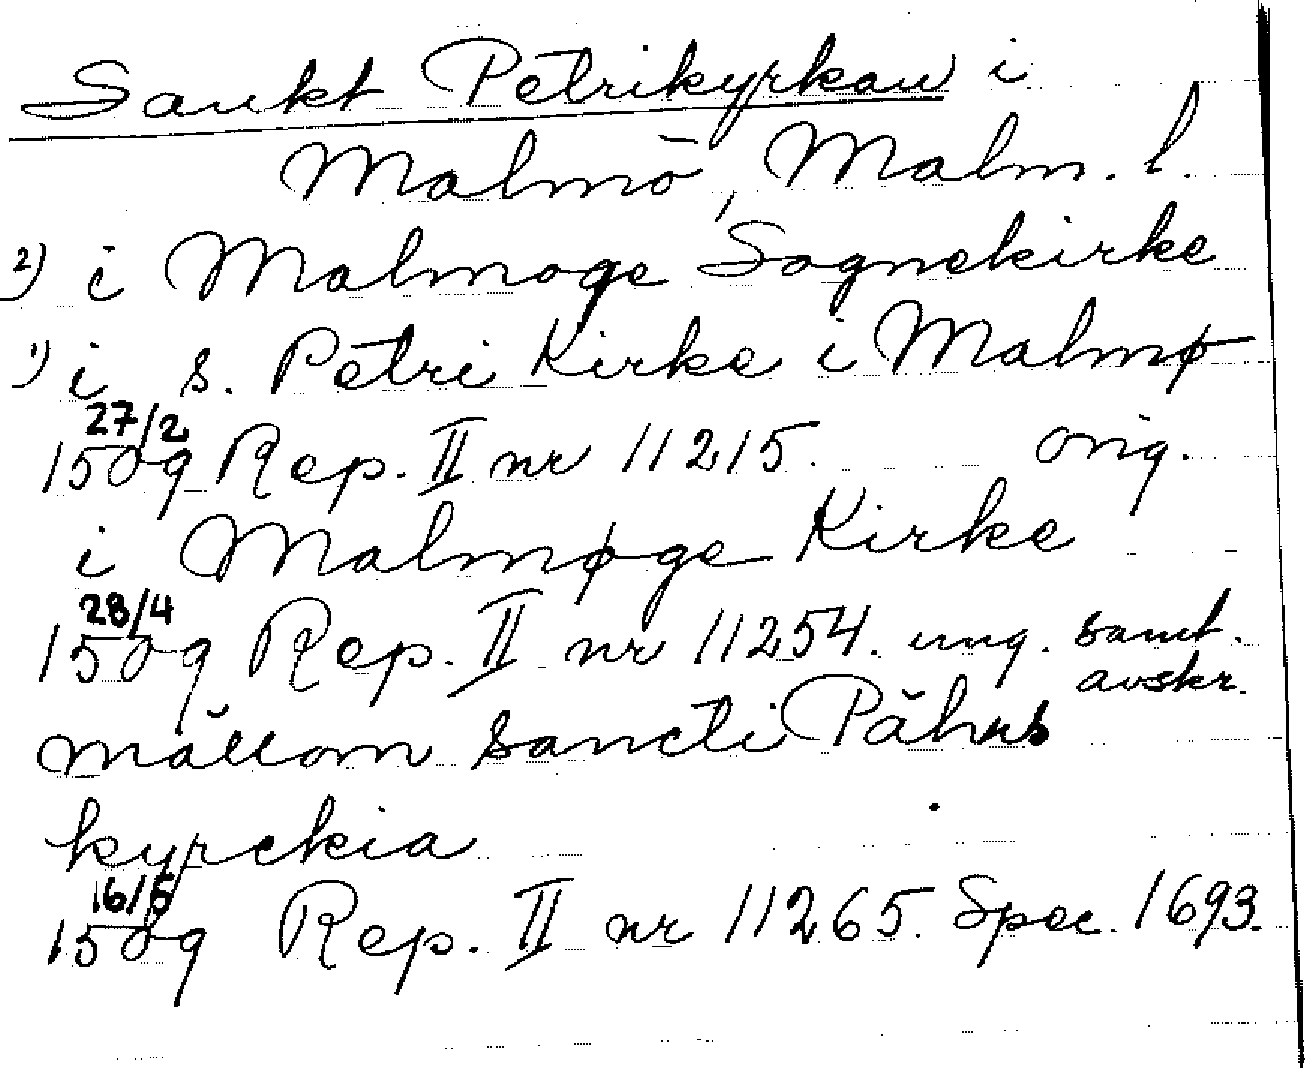 Sankt Petrikyrkan i
Malmö, Malm. l.
2) i Malmoge Sognekirke
1) i s. Petri Kirke i Malmø
27/2
1509 Rep. II nr 11215. orig.
i Malmøge Kirke
28/4
1509 Rep. II nr 11254. ung. samt.
avskr.
mällom sancti Pährs
kyrckia
16/5
1509 Rep. II nr 11265. Spec. 1693.